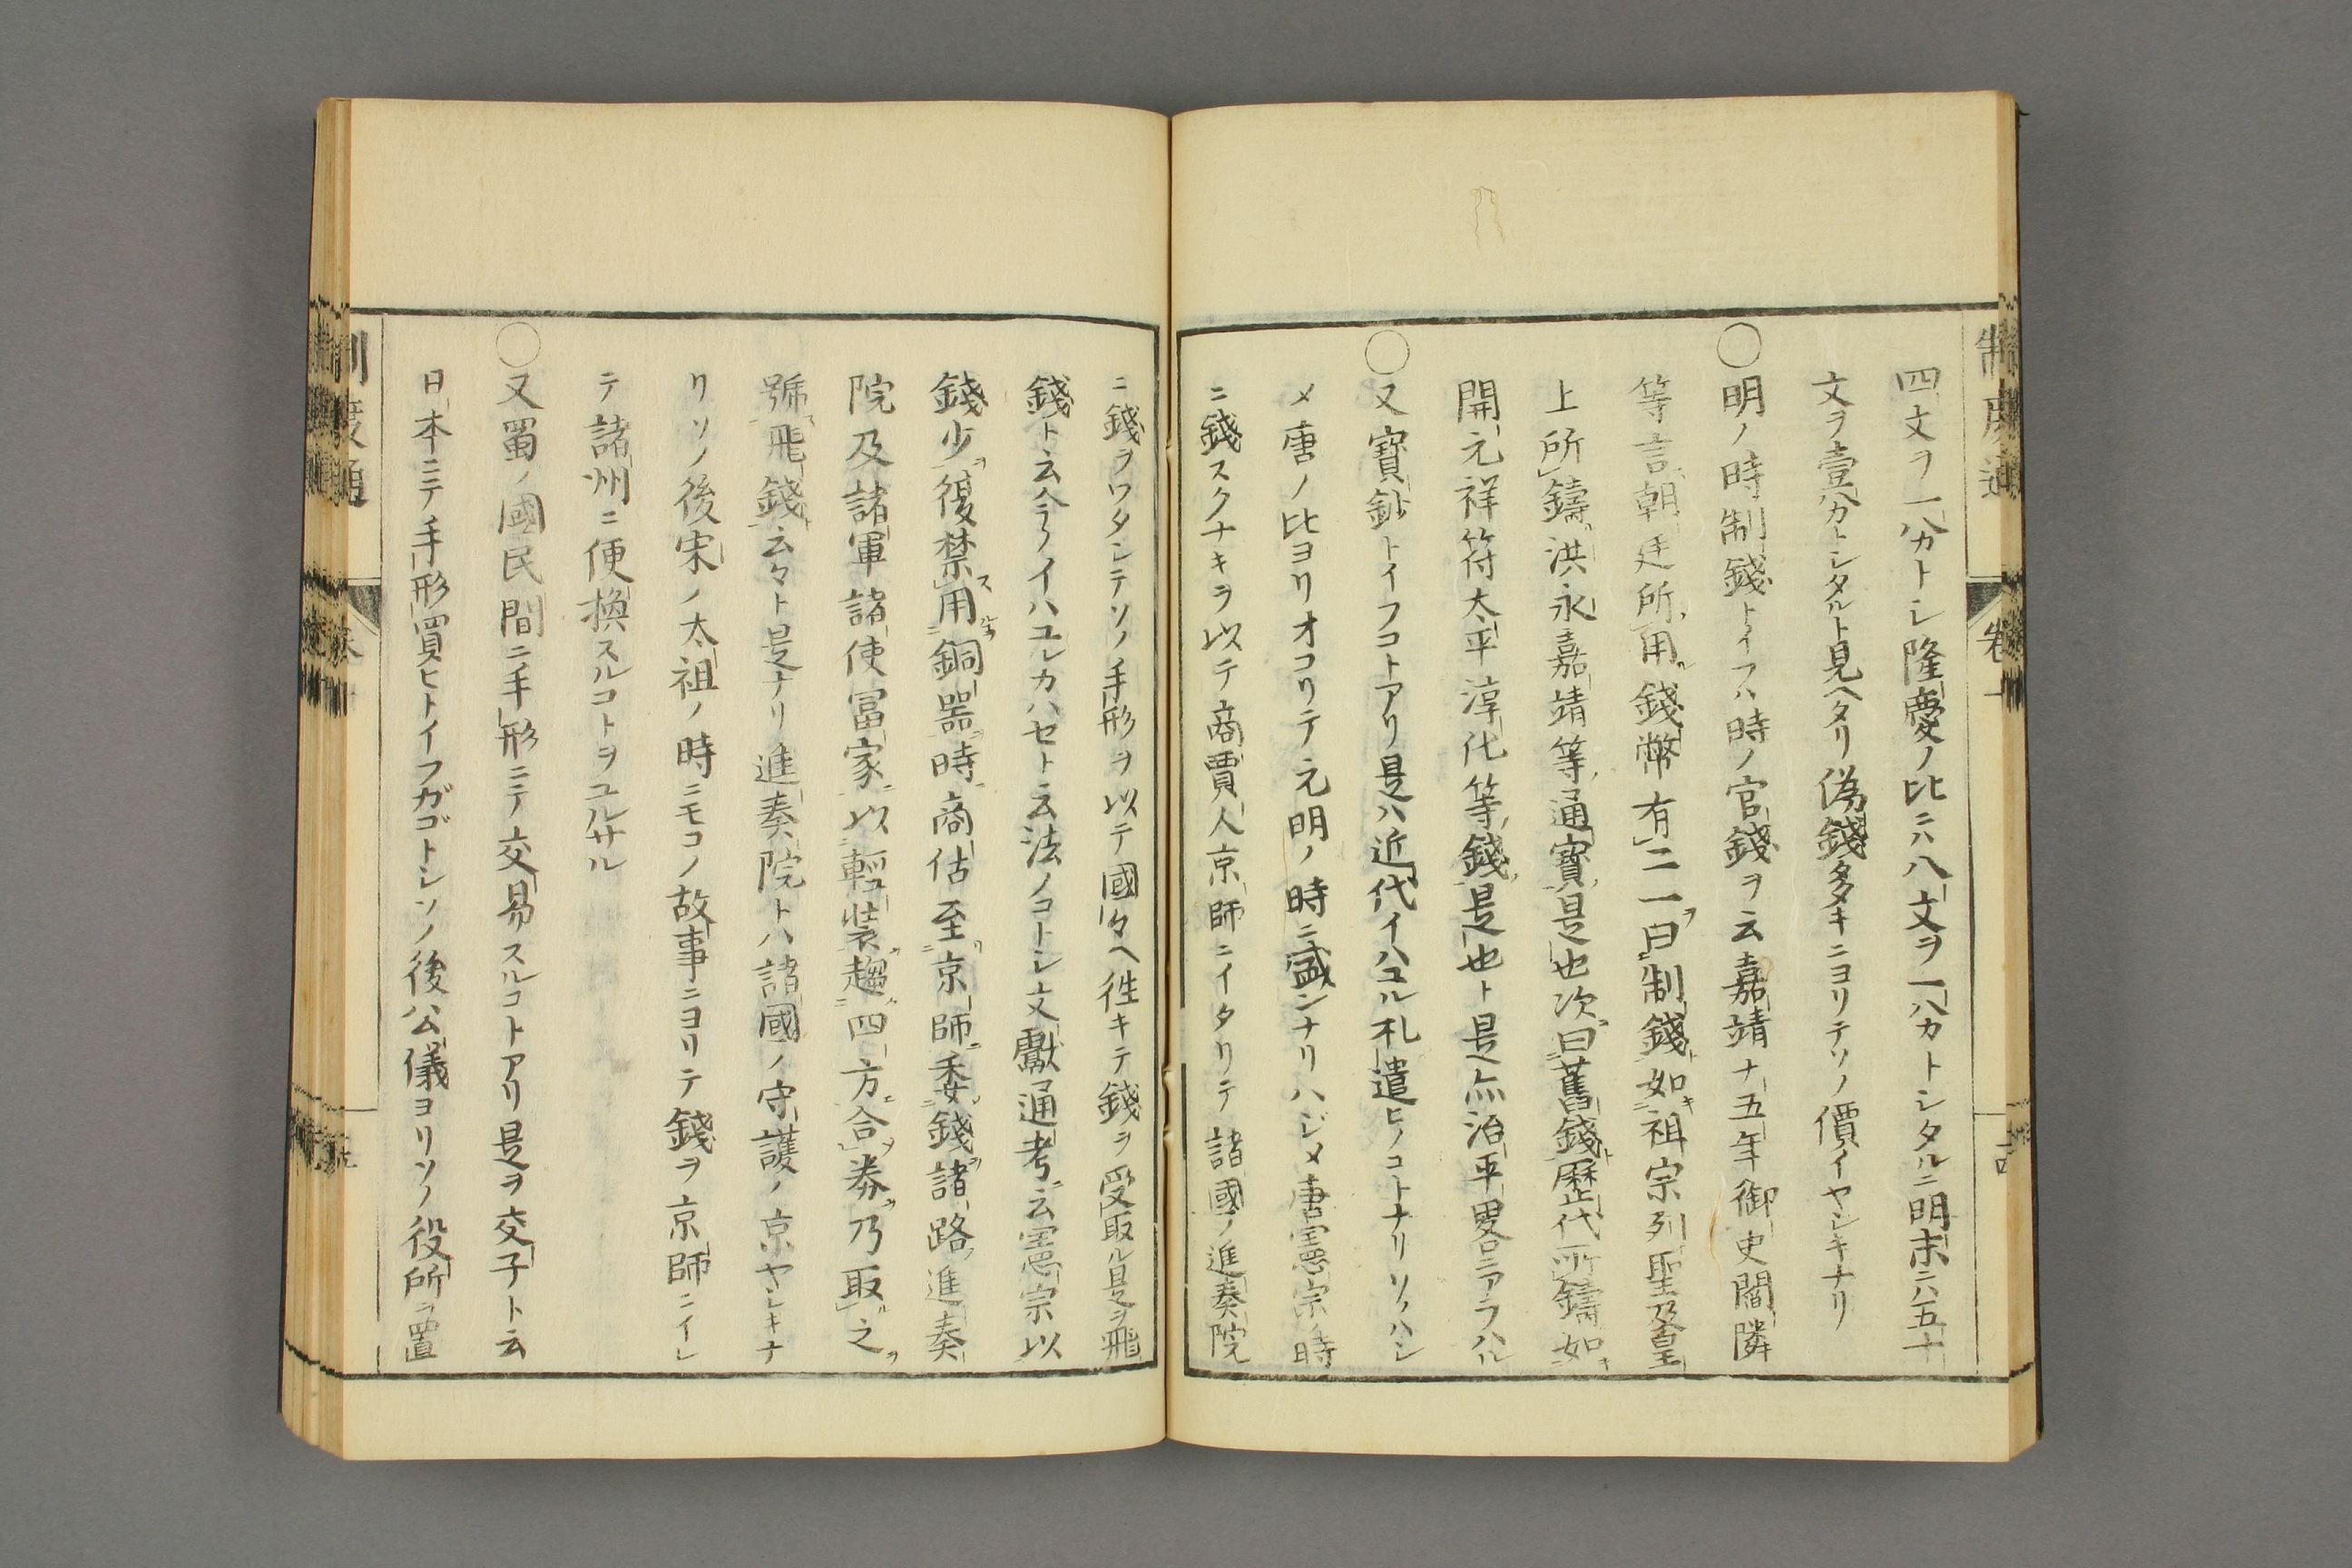 制度通
卷一
十四
四文ヲ一ハカトシ隆慶ノ比ニハ八文ヲ一ハカトシタルニ明末ニハ五十
文ヲ壹ハカトシタルト見ヘタリ偽錢多キニヨリテソノ價イヤシキナリ
○明ノ時制錢トイフハ時ノ官錢ヲ云嘉靖ナ五年御史閻隣
等言朝廷所用錢幣有二一曰制錢如祖宗列聖及皇
上所鑄洪永嘉靖等通寶是也次曰舊錢歷代所鑄如
開元祥符太平淳化等錢是也ト是ニ治平畧ニアラハル
○又寶鈔トイフコトアリ是ハ近代イハユル札遣ヒノコトナリソノハシ
メ唐ノ比ヨリオコリテ元明ノ時ニ盛ンナリハジメ唐憲宗ノ時
ニ錢スクナキヲ以テ商賈人京師ニイタリテ諸國ノ進奏院
ニ錢ヲワタシテソノ手形ヲ以テ國々ヘ徃キテ錢ヲ受取ル是ヲ飛
錢ト云今ノイハユルカハセト云法ノコトシ文獻通考云憲宗以
錢少復禁用銅器時商估至京師委錢諸路進奏
院及諸軍諸使冨家以輕裝趨四方合券乃取之
號飛錢云々ト是ナリ進奏院トハ諸國ノ守護ノ京ヤシキナ
リソノ後宋ノ太祖ノ時ニモコノ故事ニヨリテ錢ヲ京師ニイレ
テ諸州ニ便換スルコトヲユルサル
○又蜀ノ國民間ニ手形ニテ交易スルコトアリ是ヲ交子ト云
日本ニテ手形買ヒトイフガゴトシソノ後公儀ヨリソノ役所ヲ置
制度通